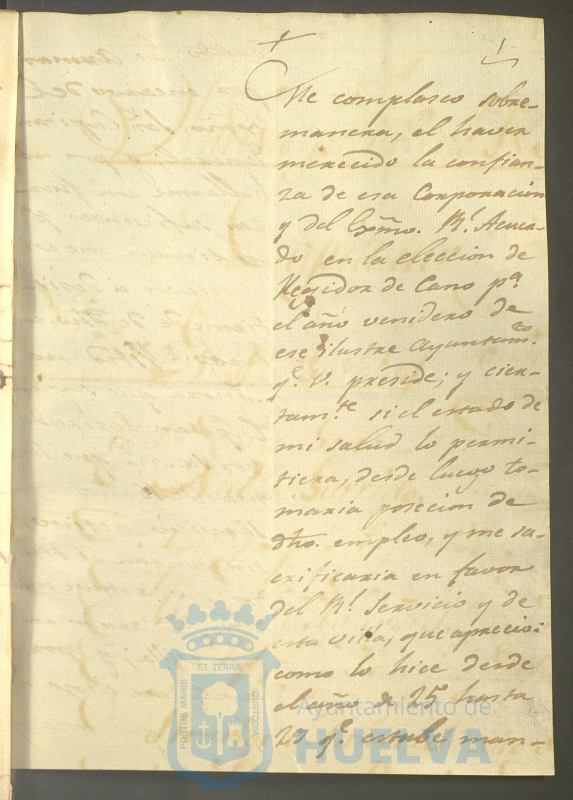 1
Me complasco sobre-
manera, el haver
merecido la confian-
za de esa Corporacion
y del Exmo. Rl. Acuer-
do en la eleccion de
Regidor de Cano pa.
el año venidero de
ese ilustre Ayuntamto.
qe. V. preside; y cier-
tamte. si el estado de
mi salud lo permi-
tiera, desde luego to-
maria posecion de
dho. empleo, y me sa-
crificaria en favor
del Rl. Servicio y de
esta villa, que aprecio:
como lo hice desde
el año de 25 hasta
27 qe. estube man-
PORTUS MARIS
ET TERRAE
CUSTODIA
Ayuntamiento de
HUELVA